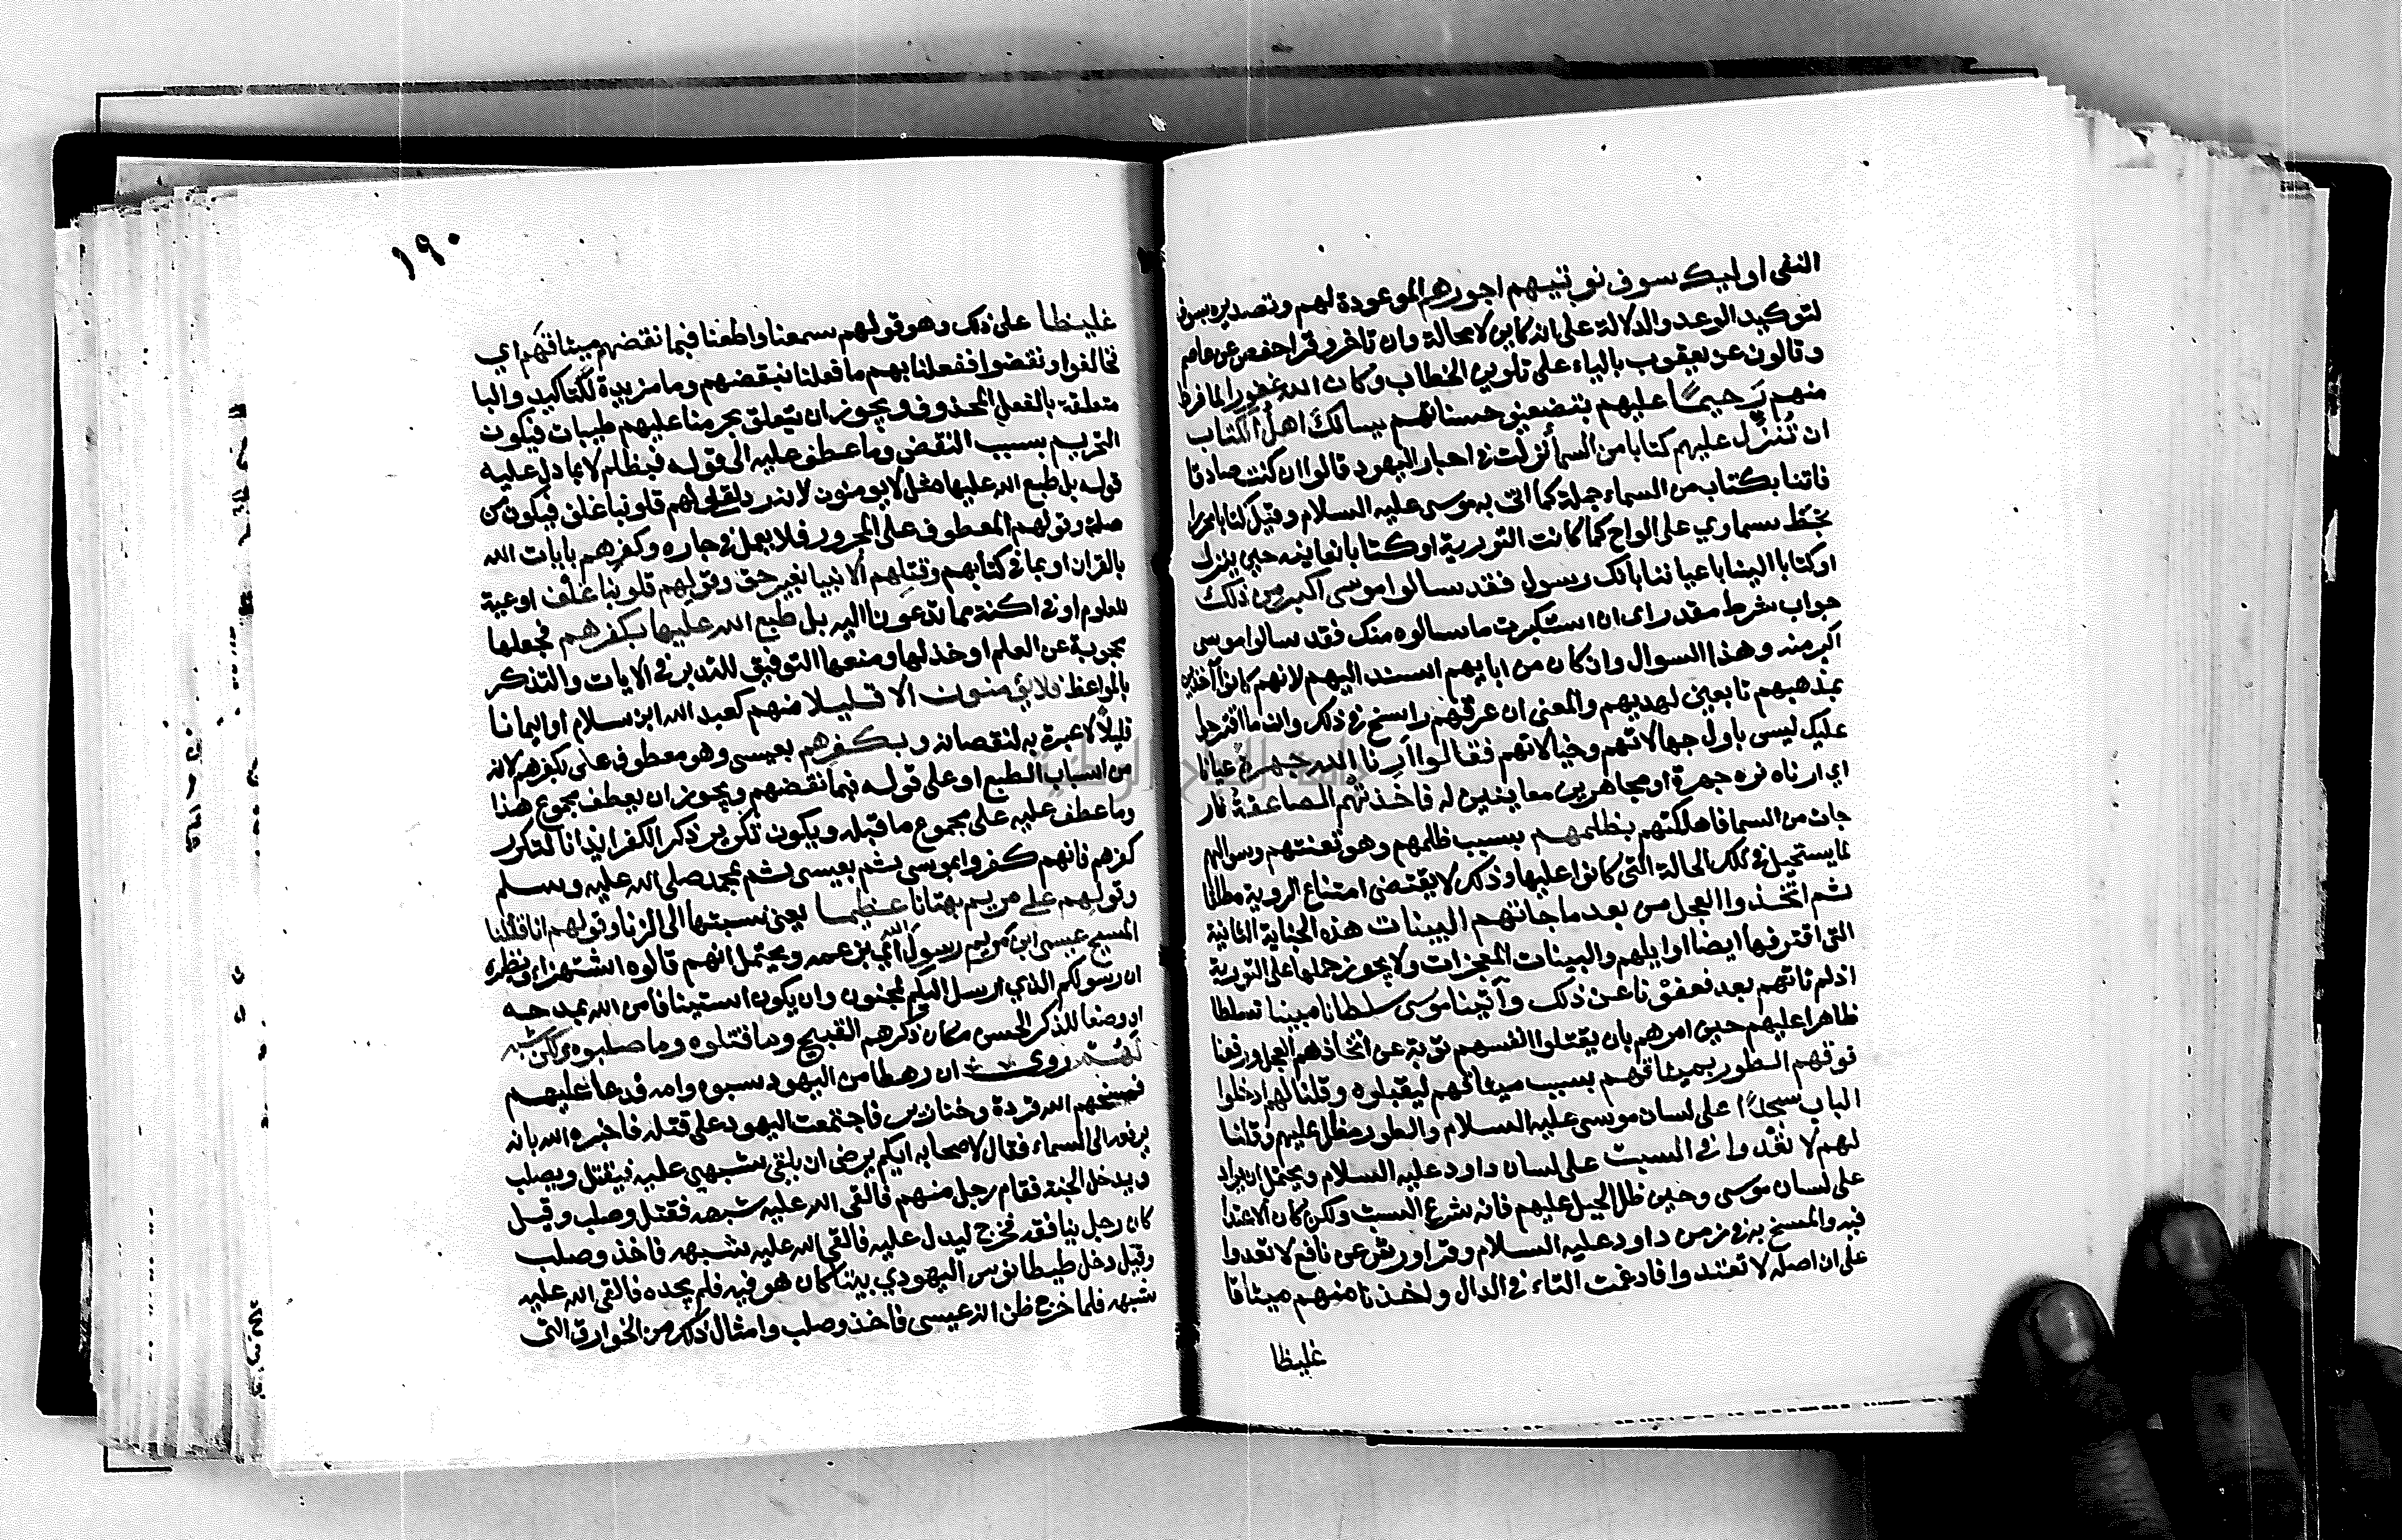 النفى اوليك سوف نوتيهم اجورهم الموعودة لهم وتصديره بسوف
لتوكيد الوعد والدلالة على انه كاين لا محالة وان تاخر وقرا حفص عن عاصم
وقالون عن يعقوب بالياء على تلوين الخطاب وكان الله غفورا لما فرط
منهم رحيمًا عليهم بتضعيف حسناتهم يسالك اهل الكتاب
ان تُنزّل عليهم كتابا من السما نزلت في احبار اليهود قالوا ان كنت صادقا
فاتنا بكتاب من السماء جملة كما اتى به موسى عليه السلام وقيل كتابا محررا
بخط سماوي على الواح كما كانت التورية او كتابا نعاينه حين ينزل
او كتابا الينا باعياننا بانك رسول فقد سالوا موسى اكبر من ذلك
جواب شرط مقدر اى ان استكبرت ما سالوه منك فقد سالوا موسى
اكبر منه وهذا السوال وان كان من ابايهم اسند اليهم لانهم كانوا آخذين
بمذهبهم تابعين لهديهم والمعنى ان عرقهم راسخ في ذلك وان ما اقترحوا
عليك ليس باول جهالاتهم وخيالاتهم فقالوا ارنا الله جهرة عيانا
اي ارناه نره جهرة او مجاهرين معاينين له فاخذتهم الصاعقة نار
جات من السما فاهلكتهم بظلمهم بسبب ظلمهم وهو تعنتهم وسوالهم
لما يستحيل في تلك الحالة التى كانوا عليها وذلك لا يقتضى امتناع الروية مطلقا
ثم اتخذوا العجل من بعد ما جاتهم البينات هذه الجناية الثانية
التى اقترفها ايضا اوايلهم والبينات المعجزات ولا يجوز حملها على التورية
اذ لم تاتهم بعد فعفونا عن ذلك وآتينا موسى سلطانا مبينا تسلطا
ظاهرا عليهم حين امرهم بان يقتلوا انفسهم توبة عن اتخاذهم العجل ورفعنا
فوقهم الطور بميثاقهم بسبب ميثاقهم ليقبلوه وقلنا لهم ادخلوا
الباب سجدًا على لسان موسى عليه السلام والطور مظل عليهم وقلنا
لهم لا تعْدوا في السبت على لسان داود عليه السلام ويحتمل ان يراد
على لسان موسى وحين ظلل الجبل عليهم فانه شرع السبت ولكن كان الاعتدا
فيه والمسخ به في زمن داود عليه السلام وقرا ورش عن نافع لا تعدوا
على ان اصله لا تعتدوا فادغمت التاء في الدال واخذنا منهم ميثاقا
غليظا
١٩٠
غليظا على ذلك وهو قولهم سمعنا واطعنا فبما نقضهم ميثاقهم اي
فخالفوا ونقضوا ففعلنا بهم ما فعلنا بنقضهم وما مزيدة للتاكيد والبا
متعلقة بالفعل المحذوف ويجوز ان يتعلق بحرمنا عليهم طيبات فيكون
التحريم بسبب النقض وما عطف عليه الى قوله فبظلم لا بما دل عليه
قوله بل طبع الله عليها مثل لا يومنون لانه رد لقولهم قلوبنا غلف فيكون من
صلة وقولهم المعطوف على المجرور فلا يعمل في جاره وكفرهم بايات الله
بالقران او بما في كتابهم وقتلهم الانبيا بغير حق وقولهم قلوبنا غلف اوعية
للعلوم او في اكنة مما تدعونا اليه بل طبع الله عليها بكفرهم فجعلها
محجوبة عن العلم او خذلها ومنعها التوفيق للتدبر في الايات والتذكر
بالمواعظ فلا يؤمنون الا قليلا منهم كعبد الله ابن سلام او ايمانا
قليلًا لا عبرة به لنقصانه وبكفرهم بعيسى وهو معطوف على بكفرهم لانه
من اسباب الطبع او على قوله فبما نقضهم ويجوز ان يعطف مجموع هذا
وما عطف عليه على مجموع ما قبله ويكون تكرير ذكر الكفر ايذانا لتكرر
كفرهم فانهم كفروا بموسى ثم بعيسى ثم بمحمد صلى الله عليه وسلم
وقولهم على مريم بهتانا عظيما يعنى نسبتها الى الزنا وقولهم انا قتلنا
المسيح عيسى ابن مريم رسول الله اي بزعمه ويحتمل انهم قالوه استهزاء ونظيره
ان رسولكم الذي ارسل اليكم لمجنون وان يكون استينافا من الله بمدحه
او وضعا للذكر الحسن مكان ذكرهم القبيح وما قتلوه وما صلبوه ولكن شبه
لهم روى ان رهطا من اليهود سبوه وامه فدعا عليهم
فمسخهم الله قردة وخنازير فاجتمعت اليهود على قتله فاخبره الله بانه
يرفعه الى السماء فقال لاصحابه ايكم يرضى ان يلقى شبهي عليه فيقتل ويصلب
ويدخل الجنة فقام رجل منهم فالقى الله عليه شبهه فقتل وصلب وقيل
كان رجل ينافقه فخرج ليدل عليه فالقى الله عليه شبهه فاخذ وصلب
وقيل دخل طيطانوس اليهودي بيتا كان هو فيه فلم يجده فالقى الله عليه
شبهه فلما خرج ظن انه عيسى فاخذ وصلب وامثال ذلك من الخوارق التى